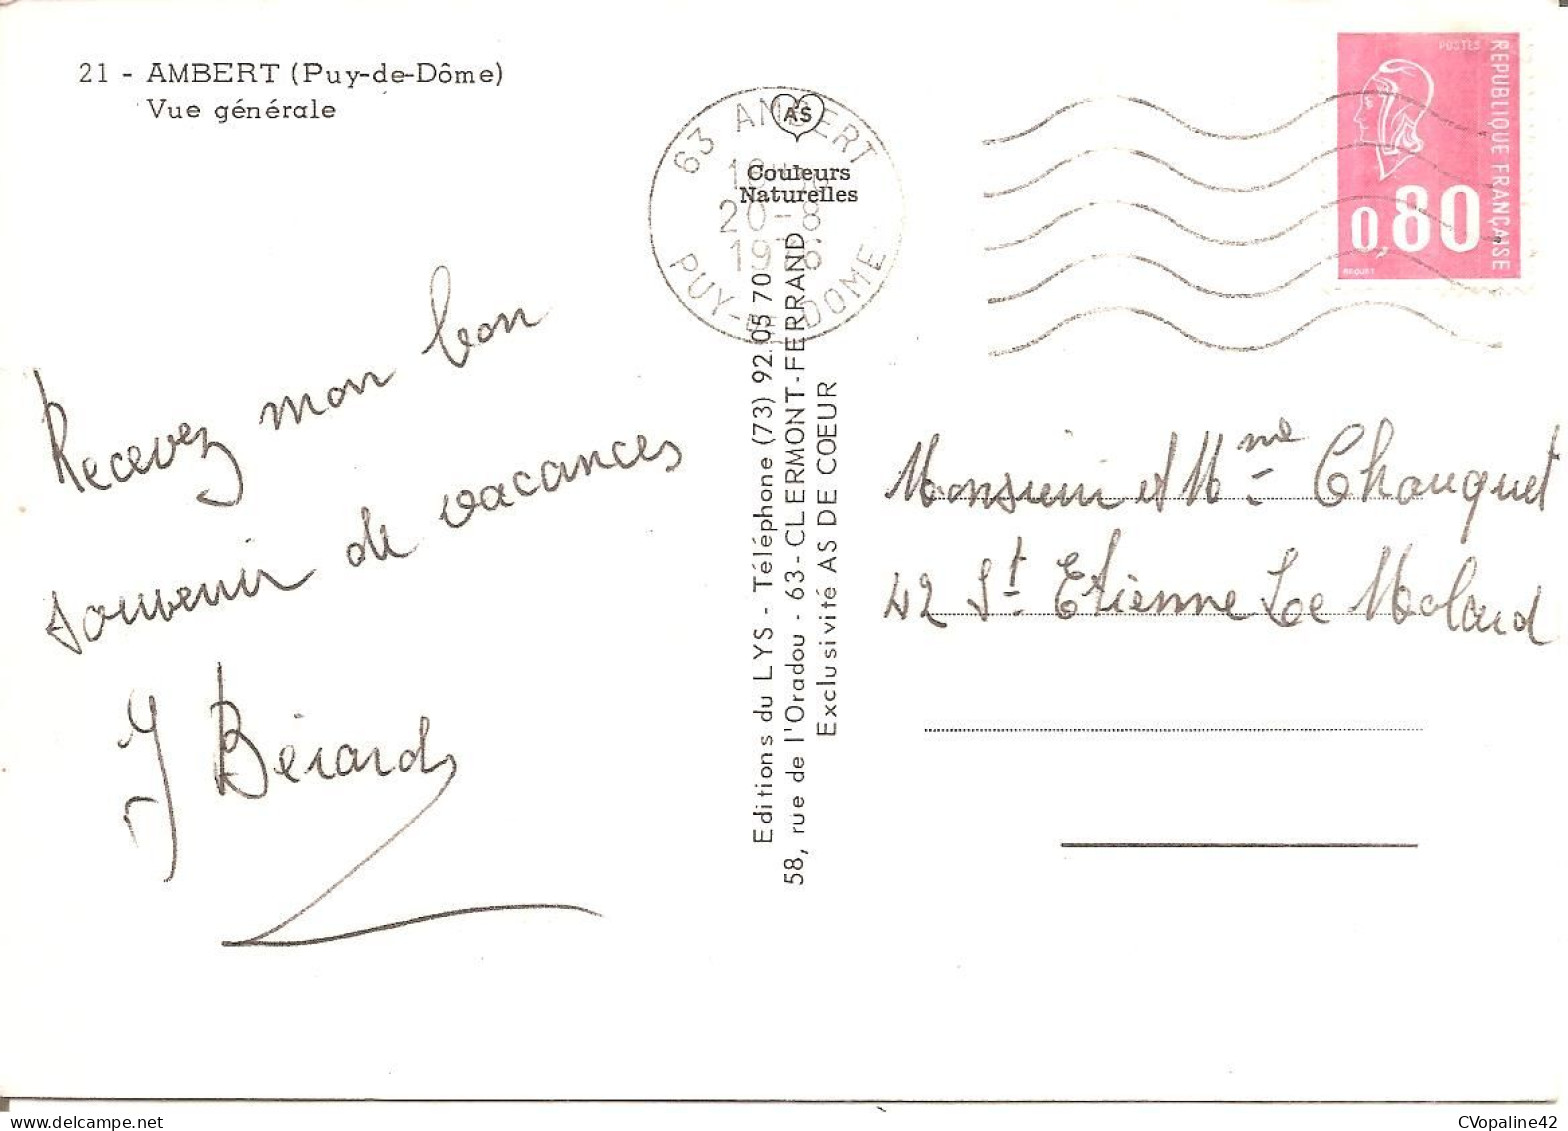 21 - AMBERT (Puy-de-Dôme)
Vue générale
63 AMBERT
20-8
1976
PUY-DE-DOME
AS
Couleurs
Naturelles
POSTES
REPUBLIQUE FRANÇAISE
0,80
Recevez mon bon
souvenir de vacances
J Bérard
Editions du LYS - Téléphone (73) 92.05 70
58, rue de l'Oradou - 63 - CLERMONT-FERRAND
Exclusivité AS DE CŒUR
Monsieur et Mme Chouquet
42 St. Etienne Le Molard
CVopaline42